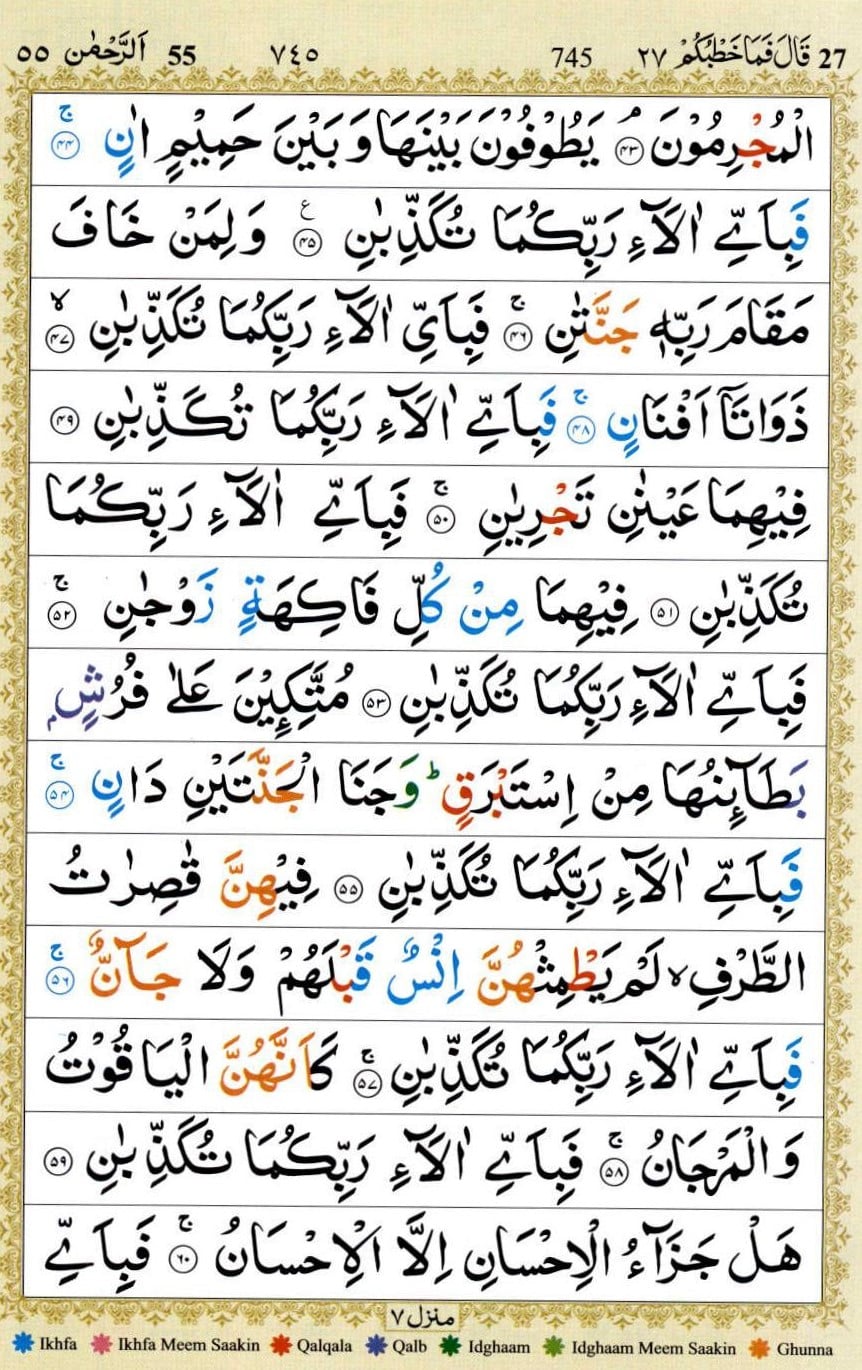 27 قَالَ فَمَا خَطْبُكُمْ ٢٧ 745 ٧٤٥ 55 اَلرَّحْمٰن ٥٥
الْمُجْرِمُوْنَ ۘ ﴿۴۳﴾ يَطُوْفُوْنَ بَيْنَهَا وَ بَيْنَ حَمِيْمٍ اٰنٍ ۚ ﴿۴۴﴾
فَبِاَيِّ اٰلَآءِ رَبِّكُمَا تُكَذِّبٰنِ ﴿۴۵﴾ ع وَ لِمَنْ خَافَ
مَقَامَ رَبِّهٖ جَنَّتٰنِ ۚ ﴿۴۶﴾ فَبِاَيِّ اٰلَآءِ رَبِّكُمَا تُكَذِّبٰنِ ۙ ﴿۴۷﴾
ذَوَاتَاۤ اَفْنَانٍ ۚ ﴿۴۸﴾ فَبِاَيِّ اٰلَآءِ رَبِّكُمَا تُكَذِّبٰنِ ﴿۴۹﴾
فِيْهِمَا عَيْنٰنِ تَجْرِيٰنِ ۚ ﴿۵۰﴾ فَبِاَيِّ اٰلَآءِ رَبِّكُمَا
تُكَذِّبٰنِ ﴿۵۱﴾ فِيْهِمَا مِنْ كُلِّ فَاكِهَةٍ زَوْجٰنِ ۚ ﴿۵۲﴾
فَبِاَيِّ اٰلَآءِ رَبِّكُمَا تُكَذِّبٰنِ ﴿۵۳﴾ مُتَّكِـِٕيْنَ عَلٰى فُرُشٍۭ
بَطَآئِنُهَا مِنْ اِسْتَبْرَقٍ ؕ وَ جَنَا الْجَنَّتَيْنِ دَانٍ ۚ ﴿۵۴﴾
فَبِاَيِّ اٰلَآءِ رَبِّكُمَا تُكَذِّبٰنِ ﴿۵۵﴾ فِيْهِنَّ قٰصِرٰتُ
الطَّرْفِ ۙ لَمْ يَطْمِثْهُنَّ اِنْسٌ قَبْلَهُمْ وَ لَا جَآنٌّ ۚ ﴿۵۶﴾
فَبِاَيِّ اٰلَآءِ رَبِّكُمَا تُكَذِّبٰنِ ۚ ﴿۵۷﴾ كَاَنَّهُنَّ الْيَاقُوْتُ
وَ الْمَرْجَانُ ۚ ﴿۵۸﴾ فَبِاَيِّ اٰلَآءِ رَبِّكُمَا تُكَذِّبٰنِ ﴿۵۹﴾
هَلْ جَزَآءُ الْاِحْسَانِ اِلَّا الْاِحْسَانُ ۚ ﴿۶۰﴾ فَبِاَيِّ
منزل ٧
Ikhfa Ikhfa Meem Saakin Qalqala Qalb Idghaam Idghaam Meem Saakin Ghunna